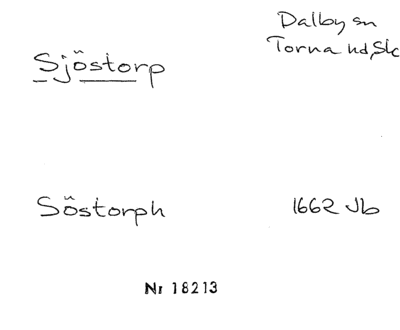 Dalby sn
Torna hd, Sk
Sjöstorp
Söstorph 1662 Jb
Nr 18213